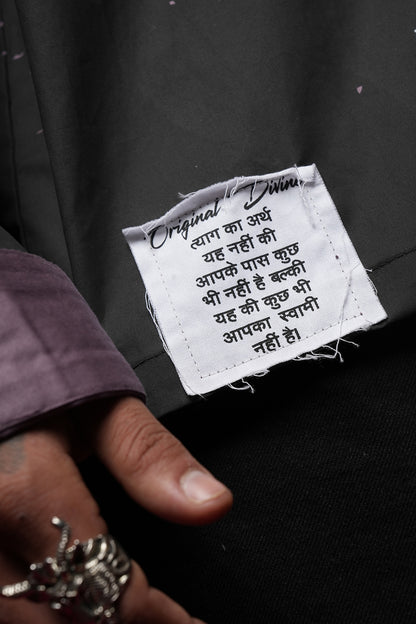 Original Divine
त्याग का अर्थ
यह नहीं की
आपके पास कुछ
भी नहीं है बल्की
यह की कुछ भी
आपका स्वामी
नहीं है।